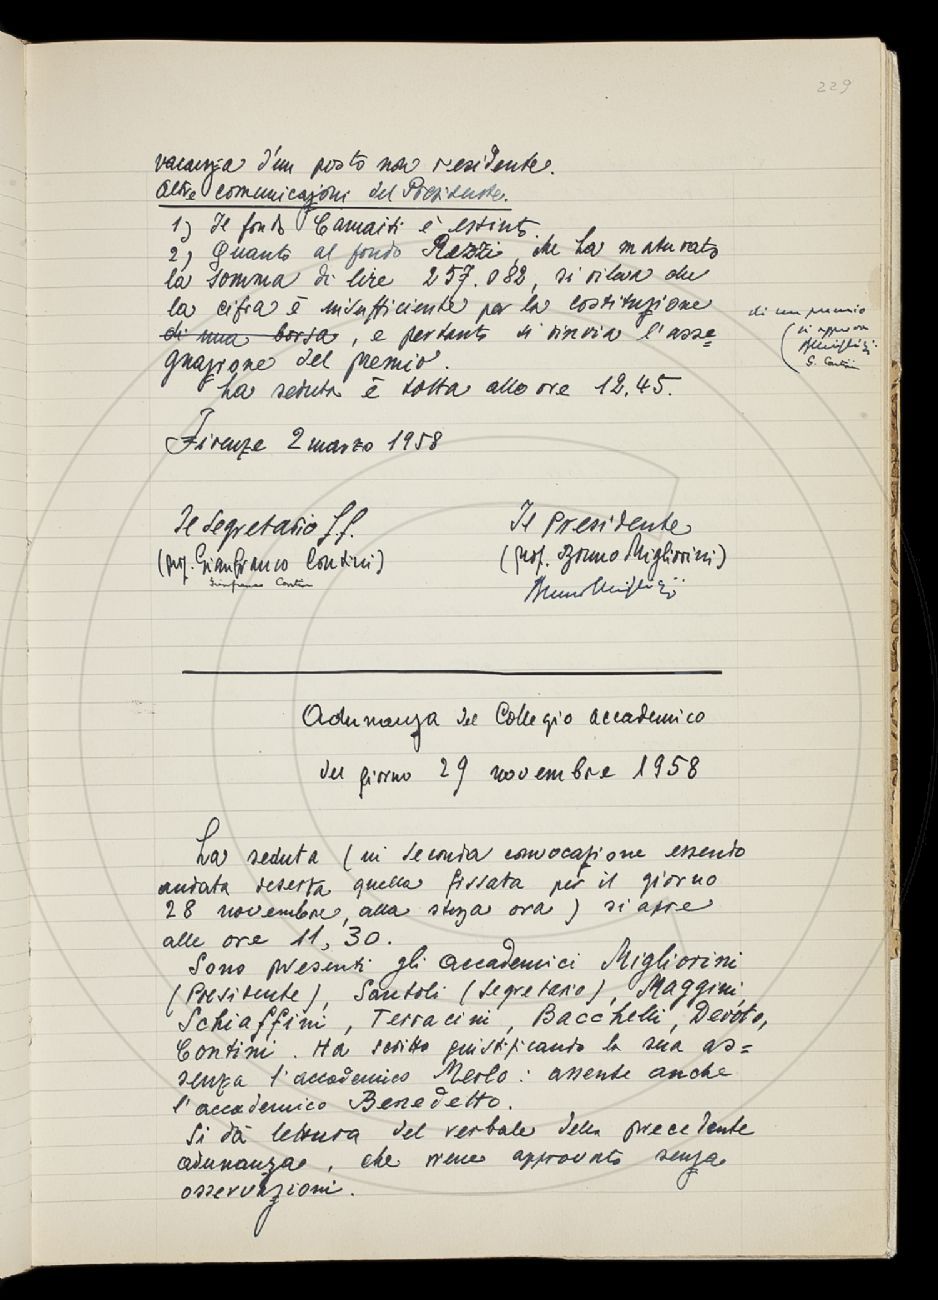 229
vacanza d'un posto non residente.
Altre comunicazioni del Presidente.
1) Il fondo Camaiti è estinto.
2) Quanto al fondo Rezzi, che ha maturato
la somma di lire 257.082, si rileva che
la cifra è insufficiente per la costituzione
di una borsa, e pertanto si rinvia l'asse=
gnazione del premio.
di un premio
(si approva
BMigliorini
G. Contini
La seduta è tolta alle ore 12.45.
Firenze 2 marzo 1958
Il Segretario ff.
(prof. Gianfranco Contini)
Gianfranco Contini
Il Presidente
(prof. Bruno Migliorini)
Bruno Migliorini
Adunanza del Collegio accademico
del giorno 29 novembre 1958
La seduta (in seconda convocazione essendo
andata deserta quella fissata per il giorno
28 novembre, alla stessa ora) si apre
alle ore 11,30.
Sono presenti gli accademici Migliorini
(Presidente), Santoli (Segretario), Maggini,
Schiaffini, Terracini, Bacchelli, Devoto,
Contini. Ha scritto giustificando la sua as=
senza l'accademico Merlo: assente anche
l'accademico Benedetto.
Si dà lettura del verbale della precedente
adunanza, che viene approvato senza
osservazioni.